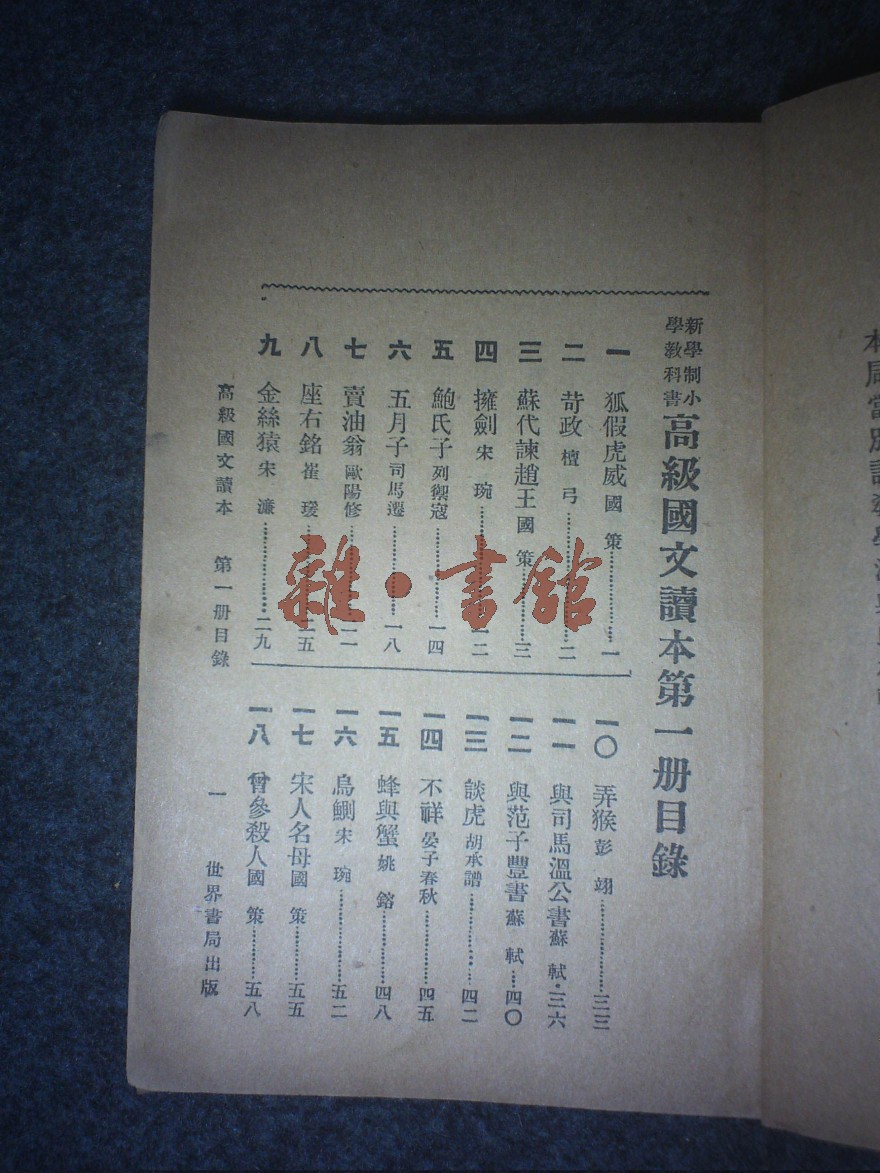 新學制小
學教科書
高級國文讀本第一册目錄
一 狐假虎威 國策 一
二 苛政 檀弓 二
三 蘇代諫趙王 國策 三
四 擁劍 宋琬 一二
五 鮑氏子 列禦寇 一四
六 五月子 司馬遷 一八
七 賣油翁 歐陽修 二二
八 座右銘 崔瑗 二五
九 金絲猿 宋濂 二九
一〇 弄猴 彭翊 三三
一一 與司馬溫公書 蘇軾 三六
一二 與范子豐書 蘇軾 四〇
一三 談虎 胡承譜 四二
一四 不祥 晏子春秋 四五
一五 蜂與蟹 姚鎔 四八
一六 烏鰂 宋琬 五二
一七 宋人名母 國策 五五
一八 曾參殺人 國策 五八
高級國文讀本 第一册目錄 一 世界書局出版
雜·書館